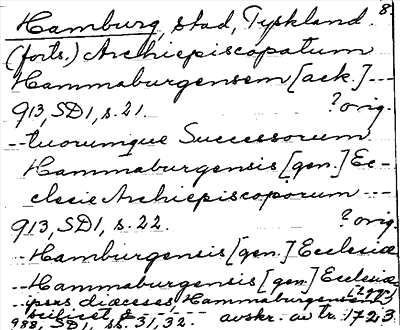 Hamburg, stad, Tyskland. 8.
(forts.) Archiepiscopatum
Hammaburgensem [ack.] ---
913, SD1, s. 21. ? orig.
-- tuorumque Successorum
Hammaburgensis [gen.] Ec-
clesie Archiepiscoporum ---
913, SD1, s. 22. ? orig.
-- Hamburgensis [gen.] Ecclesiæ
-- Hammaburgensis [gen.] Ecclesiæ
ipsis diœceses Hammaburgensem
scilicet, &
988, SD1, ss. 31, 32. avskr. av tr. 1723